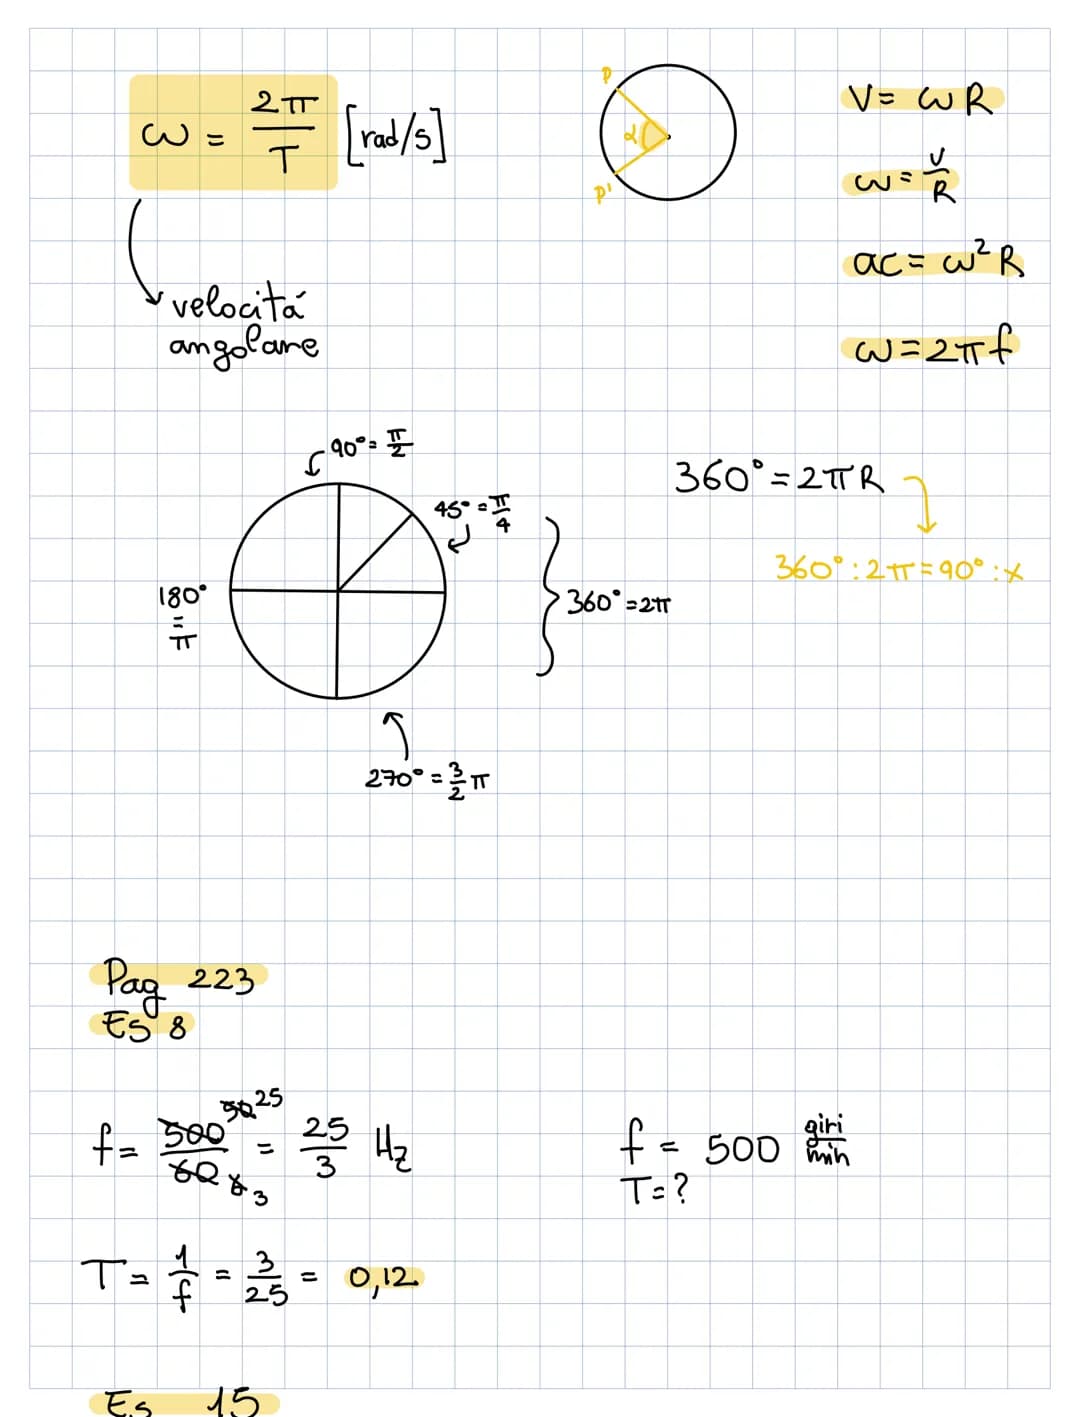 ω = 2π/T [rad/s]
velocitá
angolare
P
α
P'
V = ωR
ω = V/R
ac = ω² R
ω = 2πf
90° = π/2
45° = π/4
180°
=
π
360° = 2π
270° = 3/2 π
360° = 2πR
360° : 2π = 90° : x
Pag 223
Es 8
f = 500 50 25 / 60 6 3 = 25/3 Hz
f = 500 giri/min
T = ?
T = 1/f = 3/25 = 0,12
Es 15